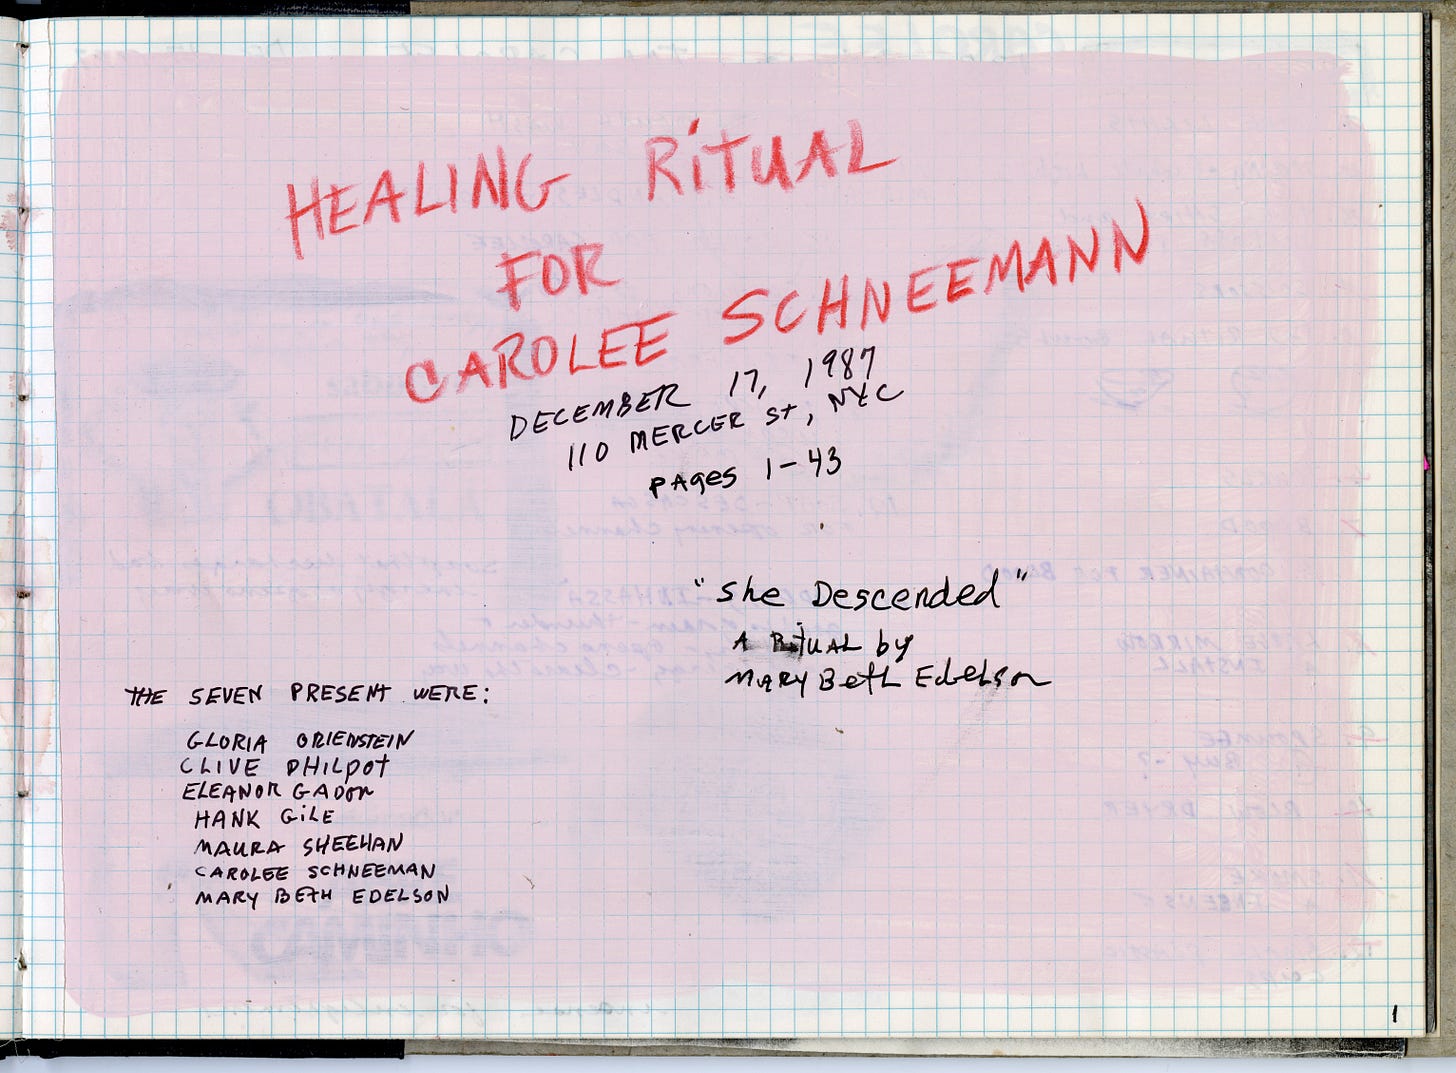 HEALING RITUAL
FOR
CAROLEE SCHNEEMANN
DECEMBER 17, 1987
110 MERCER St, NYC
PAges 1-43
"She Descended"
A RituAL by
MARY BetH EdeLson
THE SEVEN PRESENT WERE:
GLORIA ORIENSTEIN
CLIVE PHILPOT
ELEANOR GADON
HANK GILE
MAURA SHEEHAN
CAROLEE SCHNEEMAN
MARY BETH EDELSON
1